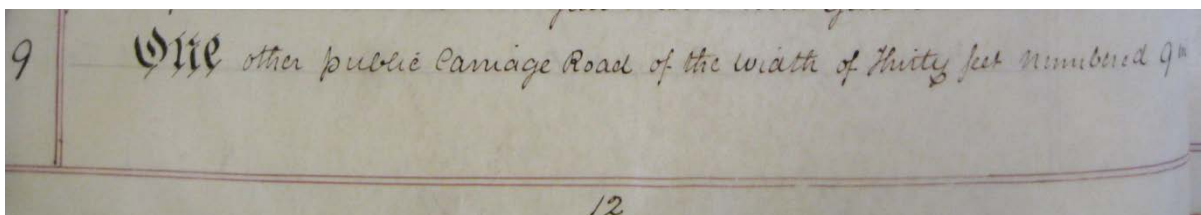 9 One other public Carriage Road of the width of Thirty feet numbered 9
12